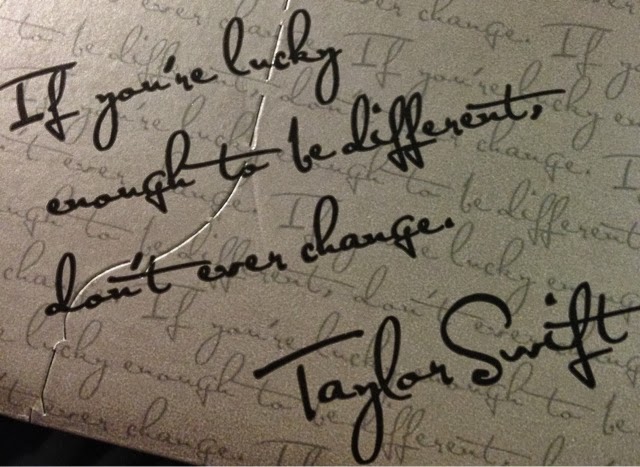 If you're lucky
enough to be different,
don't ever change.
Taylor Swift